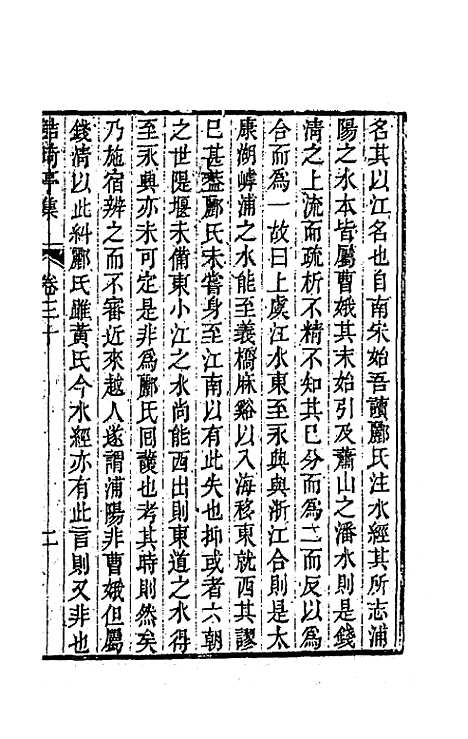 名其以江名也自南宋始吾讀酈氏注水經其所志浦
陽之水本皆屬曹娥其末始引及蕭山之潘水則是錢
清之上流而疏析不精不知其已分而爲二而反以爲
合而爲一故曰上虞江水東至永興與浙江合則是太
康湖嶀浦之水能至義橋麻谿以入海移東就西其謬
已甚蓋酈氏未嘗身至江南以有此失也抑或者六朝
之世隄堰未備東小江之水尚能西出則東道之水得
至永興亦未可定是非爲酈氏囘護也考其時則然矣
乃施宿辨之而不審近來越人遂謂浦陽非曹娥但屬
錢清以此糾酈氏雖黃氏今水經亦有此言則又非也
鮚埼亭集 卷三十 二